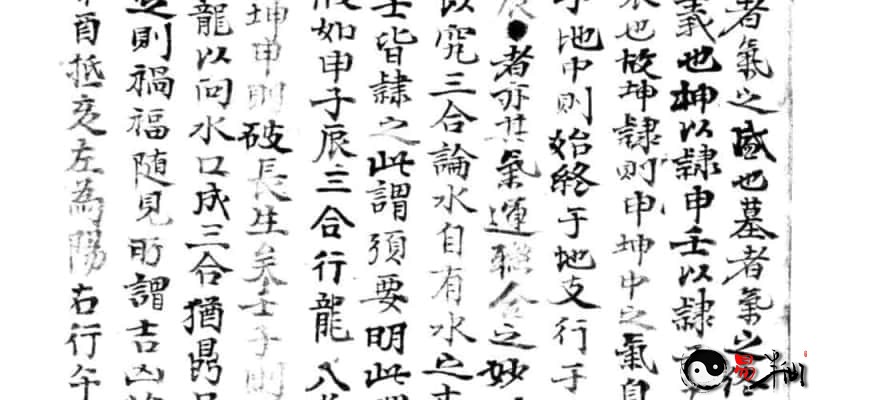 者氣之盛也墓者氣之
義也坤以隸申壬以隸
也故坤隸則申坤中之氣自
于地中則始終于地支行于
者亦其氣運聯合之妙
以究三合論水自有水之
壬皆隸之此謂須要明此
假如申子辰三合行龍八
坤申則破長生矣壬子則
龍以向水口成三合猶鼎
則禍福隨見所謂吉凶
酉抵亥左為陽右行午
易